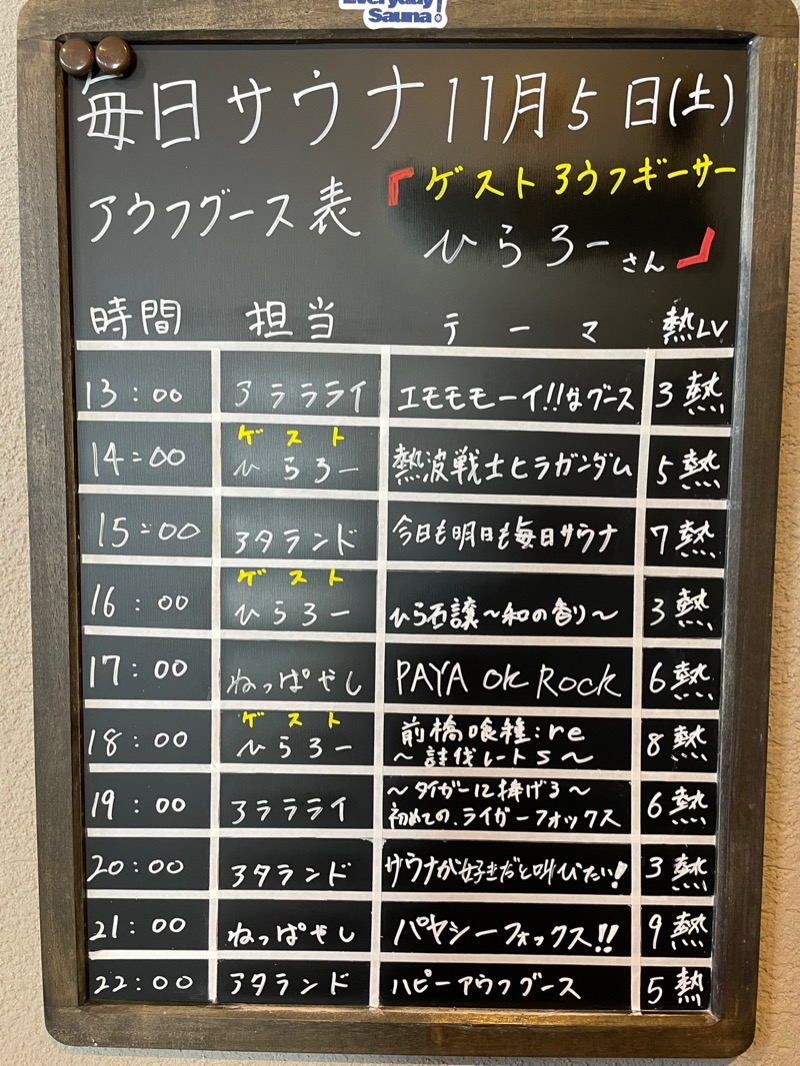 Everyday
Sauna!
毎日サウナ 11月5日(土)
アウフグース表
『ゲストアウフギーサー
ひらろーさん』
時間 担当 テーマ 熱LV
13:00 アララライ エモモモーイ!!なグース 3熱
ゲスト
14:00 ひらろー 熱波戦士ヒラガンダム 5熱
15:00 アタランド 今日も明日も毎日サウナ 7熱
ゲスト
16:00 ひらろー ひら石譲〜和の香り〜 3熱
17:00 ねっぱやし PAYA OK ROCK 6熱
ゲスト
18:00 ひらろー 前橋喰種:re
〜討伐レートS〜 8熱
19:00 アララライ 〜タイガーに捧げる〜
初めての、ライガーフォックス 6熱
20:00 アタランド サウナが好きだと叫びたい! 3熱
21:00 ねっぱやし パヤシーフォックス!! 9熱
22:00 アタランド ハピーアウフグース 5熱